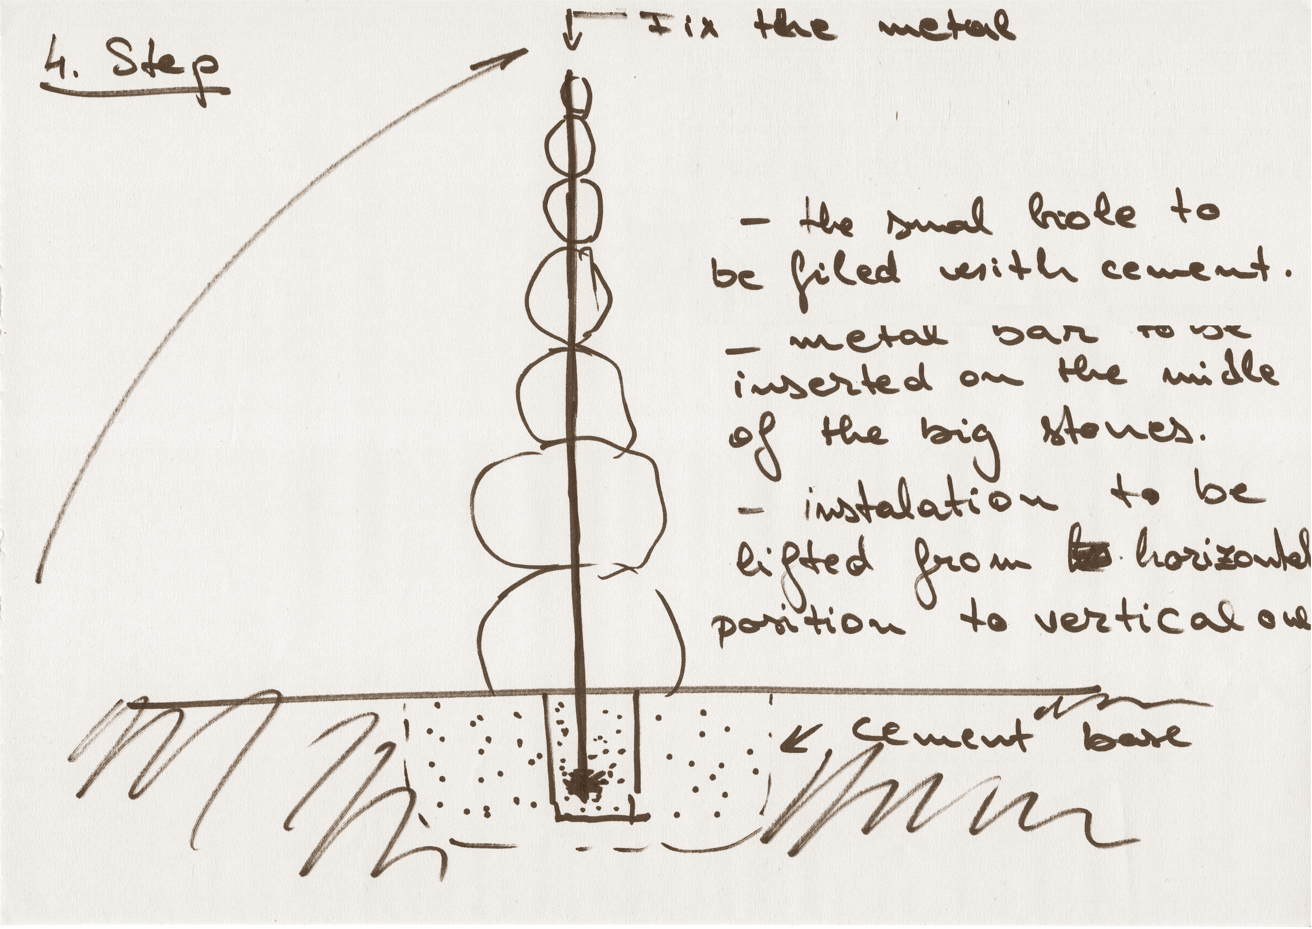 4. Step
Fix the metal
- the smal hole to
be filed with cement.
- metal bar to be
inserted on the midle
of the big stones.
- instalation to be
lifted from horizontal
position to vertical one
cement base